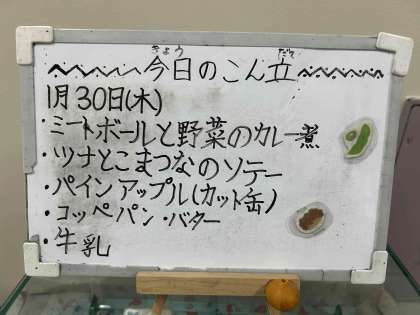 今日のこん立
1月30日(木)
・ミートボールと野菜のカレー煮
・ツナとこまつなのソテー
・パインアップル(カット缶)
・コッペパン・バター
・牛乳